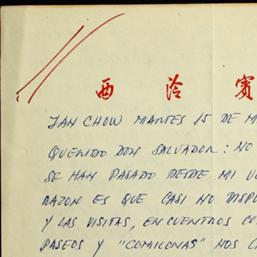 西泠賓
HAN CHOW MARTES 15 DE M
QUERIDO DON SALVADOR: NO
SE HAN PASADO DESDE MI
RAZON ES QUE CASI NO DISPO
Y LAS VISITAS, ENCUENTROS CO
PASEOS Y "COMILONAS" NOS